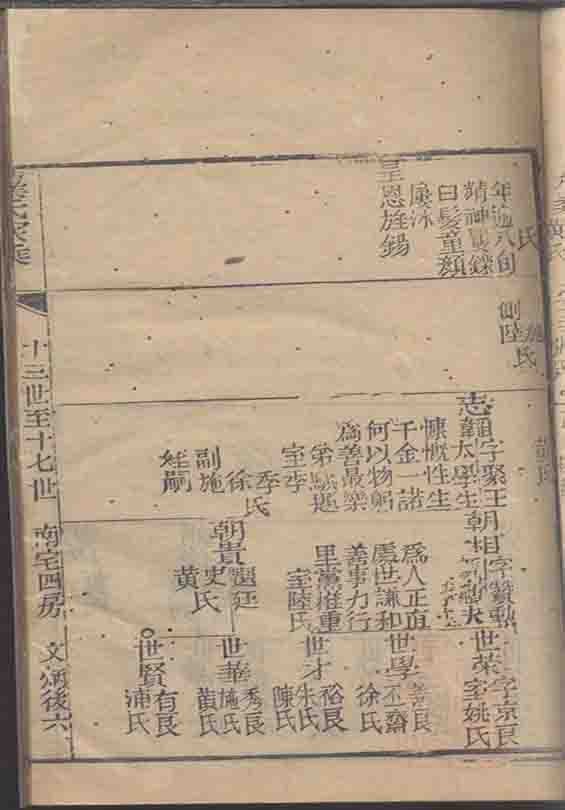 氏
年逾八旬
精神矍鑠
白髮童顏
屢沐
皇恩旌錫
施氏
側陸
志
字聚玉
太學生
慷慨性生
千金一諾
何以物躬
為善最樂
室李
季氏
徐
副施
姪嗣
朝相
字贊勳
為人正直
處世謙和
善事力行
里黨推重
室陸氏
朝貴
史氏
黃
世榮
字京良
室姚氏
世學
善良
丕齋
徐氏
世才
裕良
朱氏
陳氏
世華
秀良
施氏
黃氏
世賢
有良
浦氏
氏家乘
十三世至十七世
南宅四房
文
後六